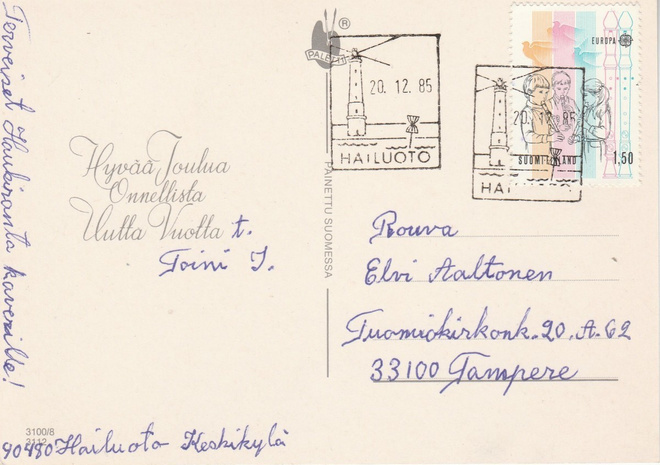 Terveiset Haukiranta kaverille!
PALETTI
®
20. 12. 85
HAILUOTO
20. 12. 85
HAI
EUROPA
SUOMI FINLAND
1,50
Hyvää Joulua
Onnellista
Uutta Vuotta t.
Toini J.
PAINETTU SUOMESSA
Rouva
Elvi Aaltonen
Tuomiokirkonk. 20. A. 62
33100 Tampere
3100/8
3112
90480 Hailuoto Keskikylä